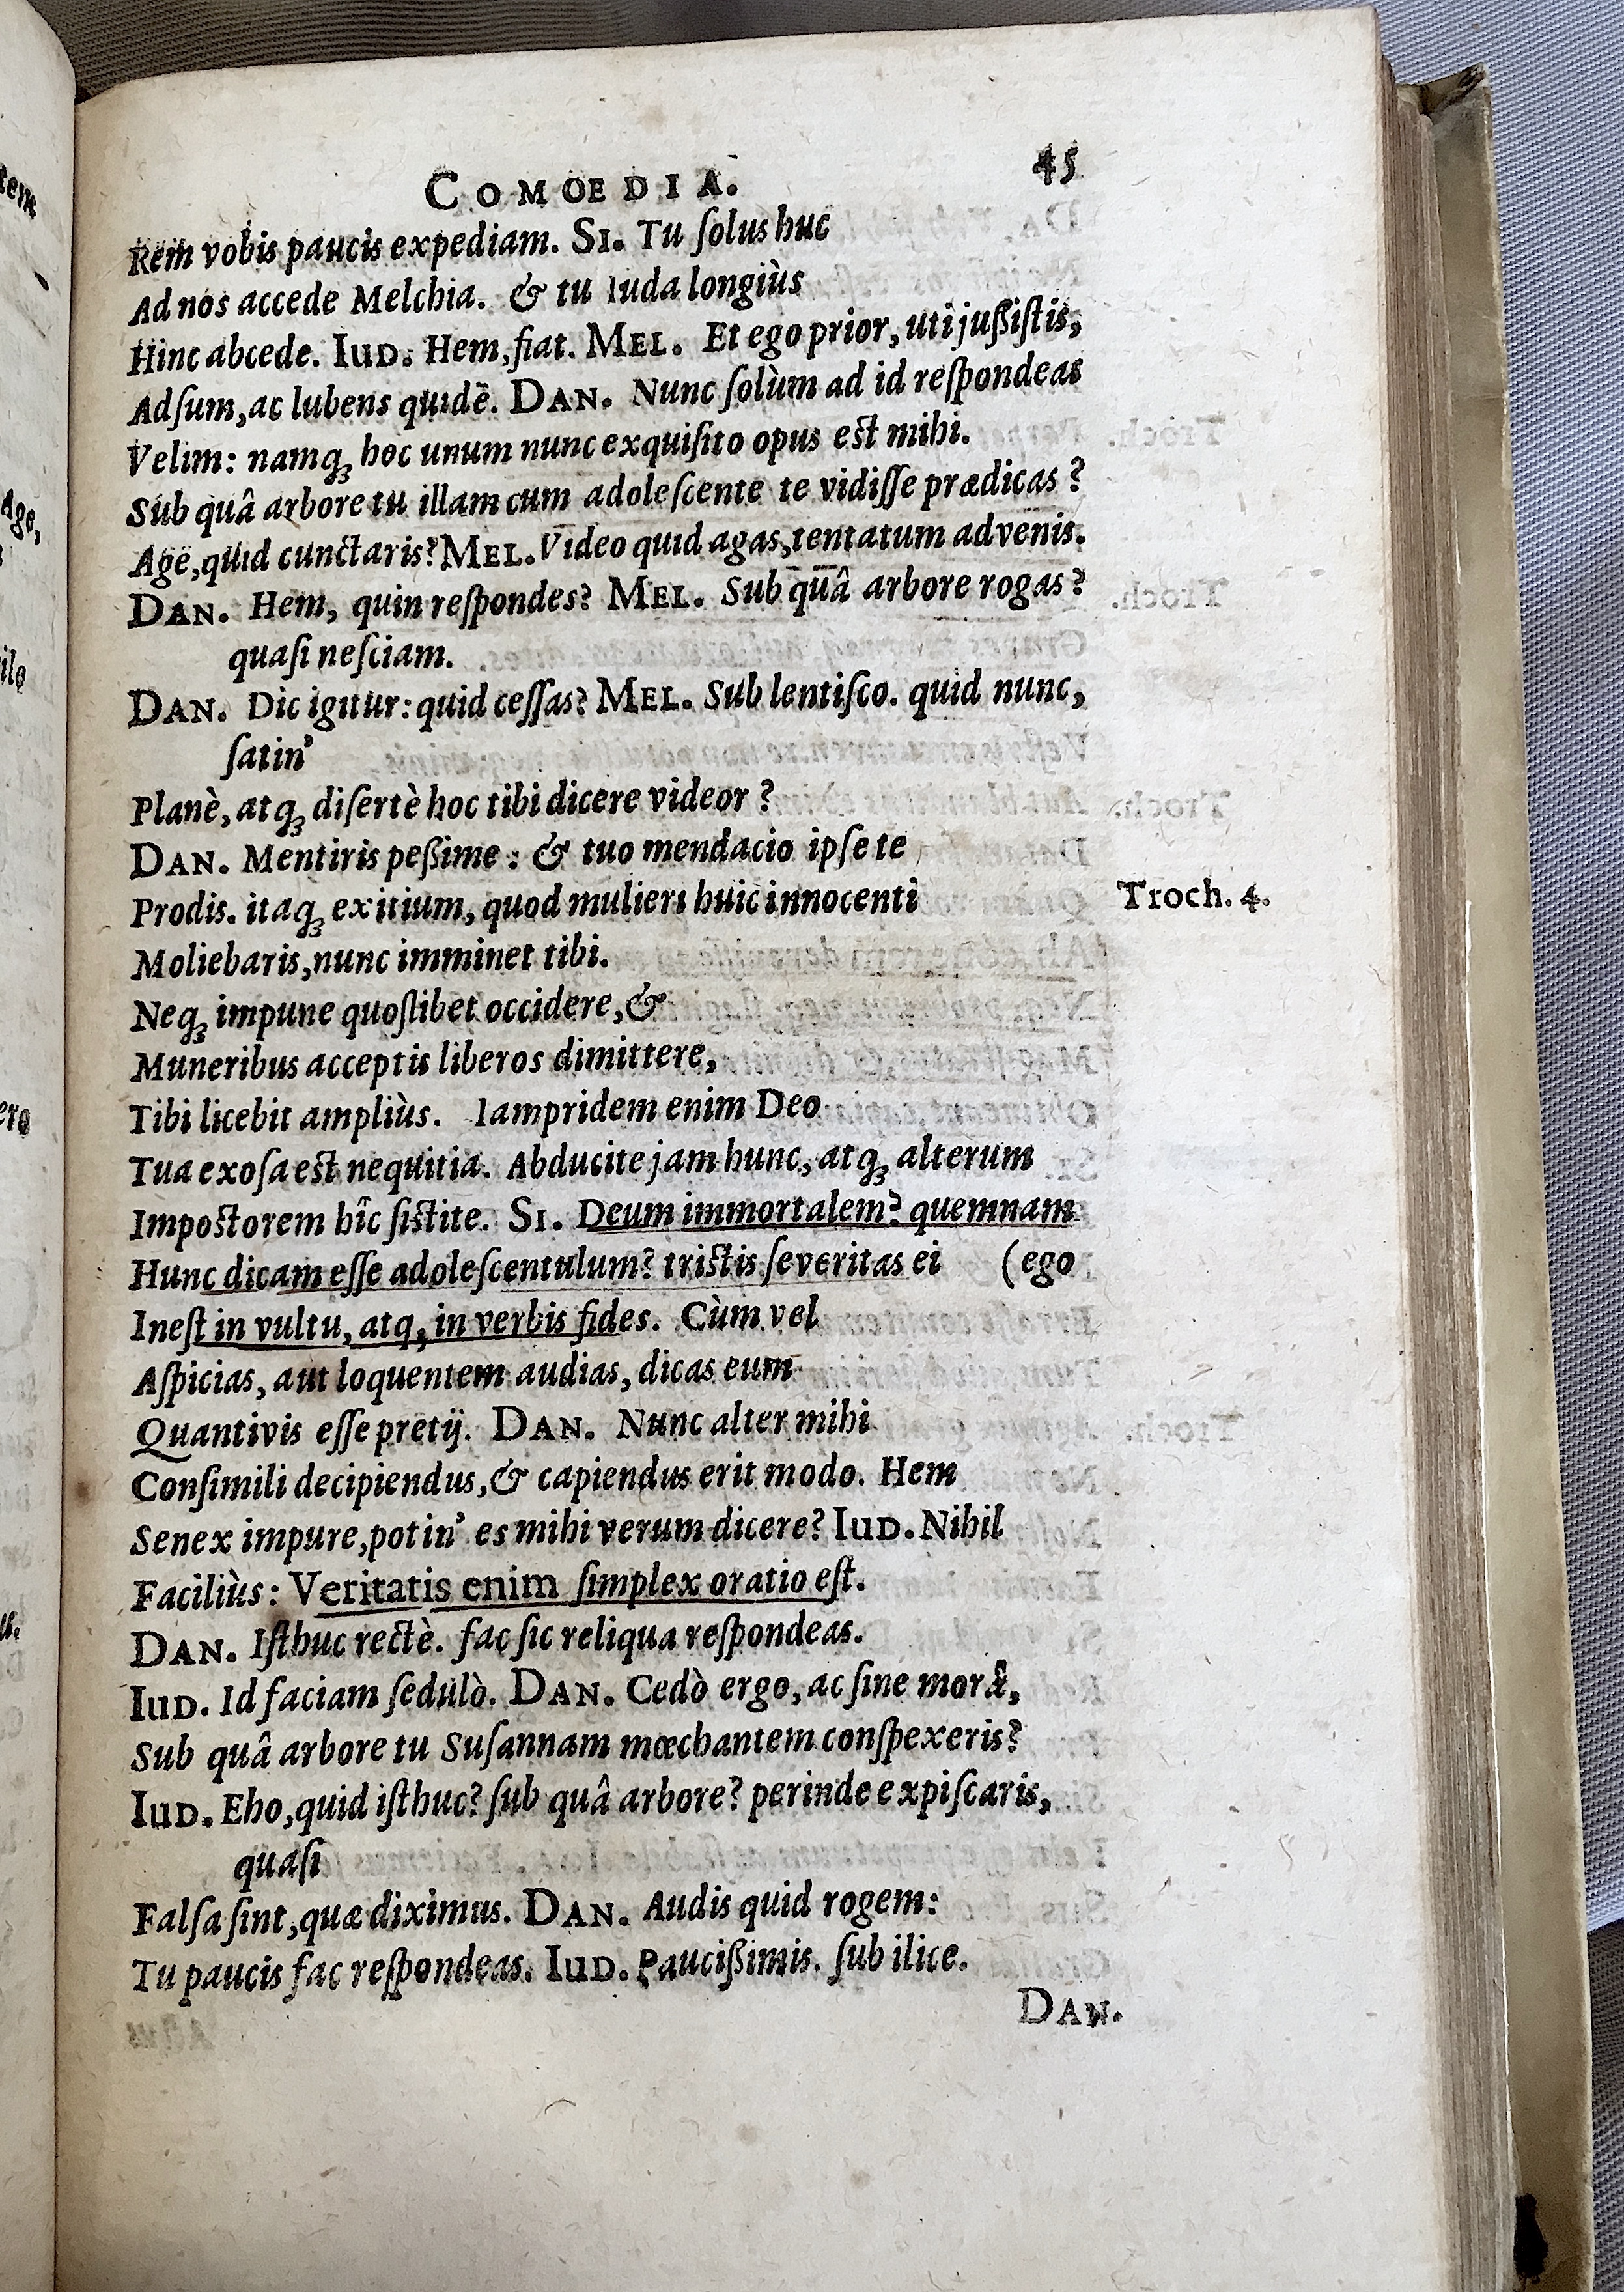 COMOEDIA. 45
Rem vobis paucis expediam. SI. Tu ſolus huc
Ad nos accede Melchia. & tu Iuda longiùs
Hinc abcede. IUD. Hem, fiat. MEL. Et ego prior, uti jußiſtis,
Adſum, ac lubens quidẽ. DAN. Nunc ſolùm ad id reſpondeas
Velim: namq; hoc unum nunc exquiſito opus eſt mihi.
Sub quâ arbore tu illam cum adoleſcente te vidiſſe prædicas?
Age, quid cunctaris? MEL. Video quid agas, tentatum advenis.
DAN. Hem, quin reſpondes? MEL. Sub quâ arbore rogas?
quaſi neſciam.
DAN. Dic igitur: quid ceſſas? MEL. Sub lentiſco. quid nunc,
ſatin'
Planè, atq; diſertè hoc tibi dicere videor?
DAN. Mentiris peßime: & tuo mendacio ipſe te
Prodis. itaq; exitium, quod mulieri huic innocenti
Troch. 4.
Moliebaris, nunc imminet tibi.
Neq; impune quoſlibet occidere, &
Muneribus acceptis liberos dimittere,
Tibi licebit ampliùs. Iampridem enim Deo
Tua exoſa eſt nequitia. Abducite jam hunc, atq; alterum
Impoſtorem hîc ſiſtite. SI. Deum immortalem? quemnam
Hunc dicam eſſe adoleſcentulum? triſtis ſeveritas ei (ego
Ineſt in vultu, atq; in verbis fides. Cùm vel
Aſpicias, aut loquentem audias, dicas eum
Quantivis eſſe pretij. DAN. Nunc alter mihi
Conſimili decipiendus, & capiendus erit modo. Hem
Senex impure, potin' es mihi verum dicere? IUD. Nihil
Faciliùs: Veritatis enim ſimplex oratio eſt.
DAN. Iſthuc rectè. fac ſic reliqua reſpondeas.
IUD. Id faciam ſedulò. DAN. Cedò ergo, ac ſine morâ,
Sub quâ arbore tu Suſannam mœchantem conſpexeris?
IUD. Eho, quid iſthuc? ſub quâ arbore? perinde expiſcaris,
quaſi
Falſa ſint, quæ diximus. DAN. Audis quid rogem:
Tu paucis fac reſpondeas. IUD. Paucißimis. ſub ilice.
DAN.